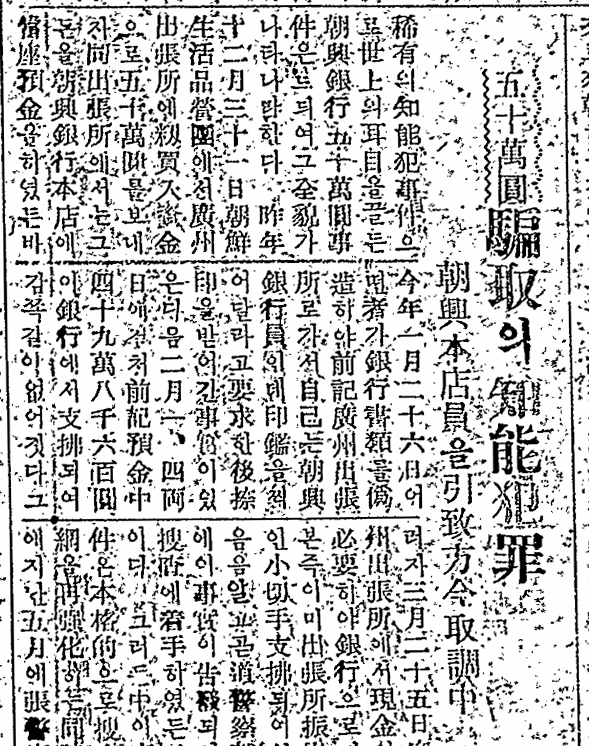 五十萬圓
騙取의 知能犯罪
朝興本店員을 引致方今取調中
稀有의 知能犯事件으
로 世上의 耳目을 끌든
朝興銀行 五十萬圓事
件은 드듸여 그 全貌가
나타나랴 한다 昨年
十二月三十一日 朝鮮
生活品營團에서 廣州
出張所에 籾買入資金
으로 五十萬圓을 보내
자 同出張所에서는 그
돈을 朝興銀行本店에
當座預金을 하였든바
今年一月二十六日 어
떤者가 銀行書類를 僞
造하야 前記廣州出張
所로 가서 自己는 朝興
銀行員인데 印鑑을 찍
어달라고 要求한 後 捺
印을 받어간 事實이 있
은 다음 二月一、四兩
日에 걸처 前記預金中
四十九萬八千六百圓
이 銀行에서 支拂되여
감쪽같이 없어젓다 그
러자 三月二十五日
州出張所에서 現金
必要하야 銀行으로
본즉 이미 出張所振
인 小切手 支拂되어
음을 알고 곧 道警察
에 이 事實이 告發되
搜府에 着手하였든
이다 그러든中 이
件은 本格的으로 搜
網을 再强化하든 同
에 지난 五月에 張警